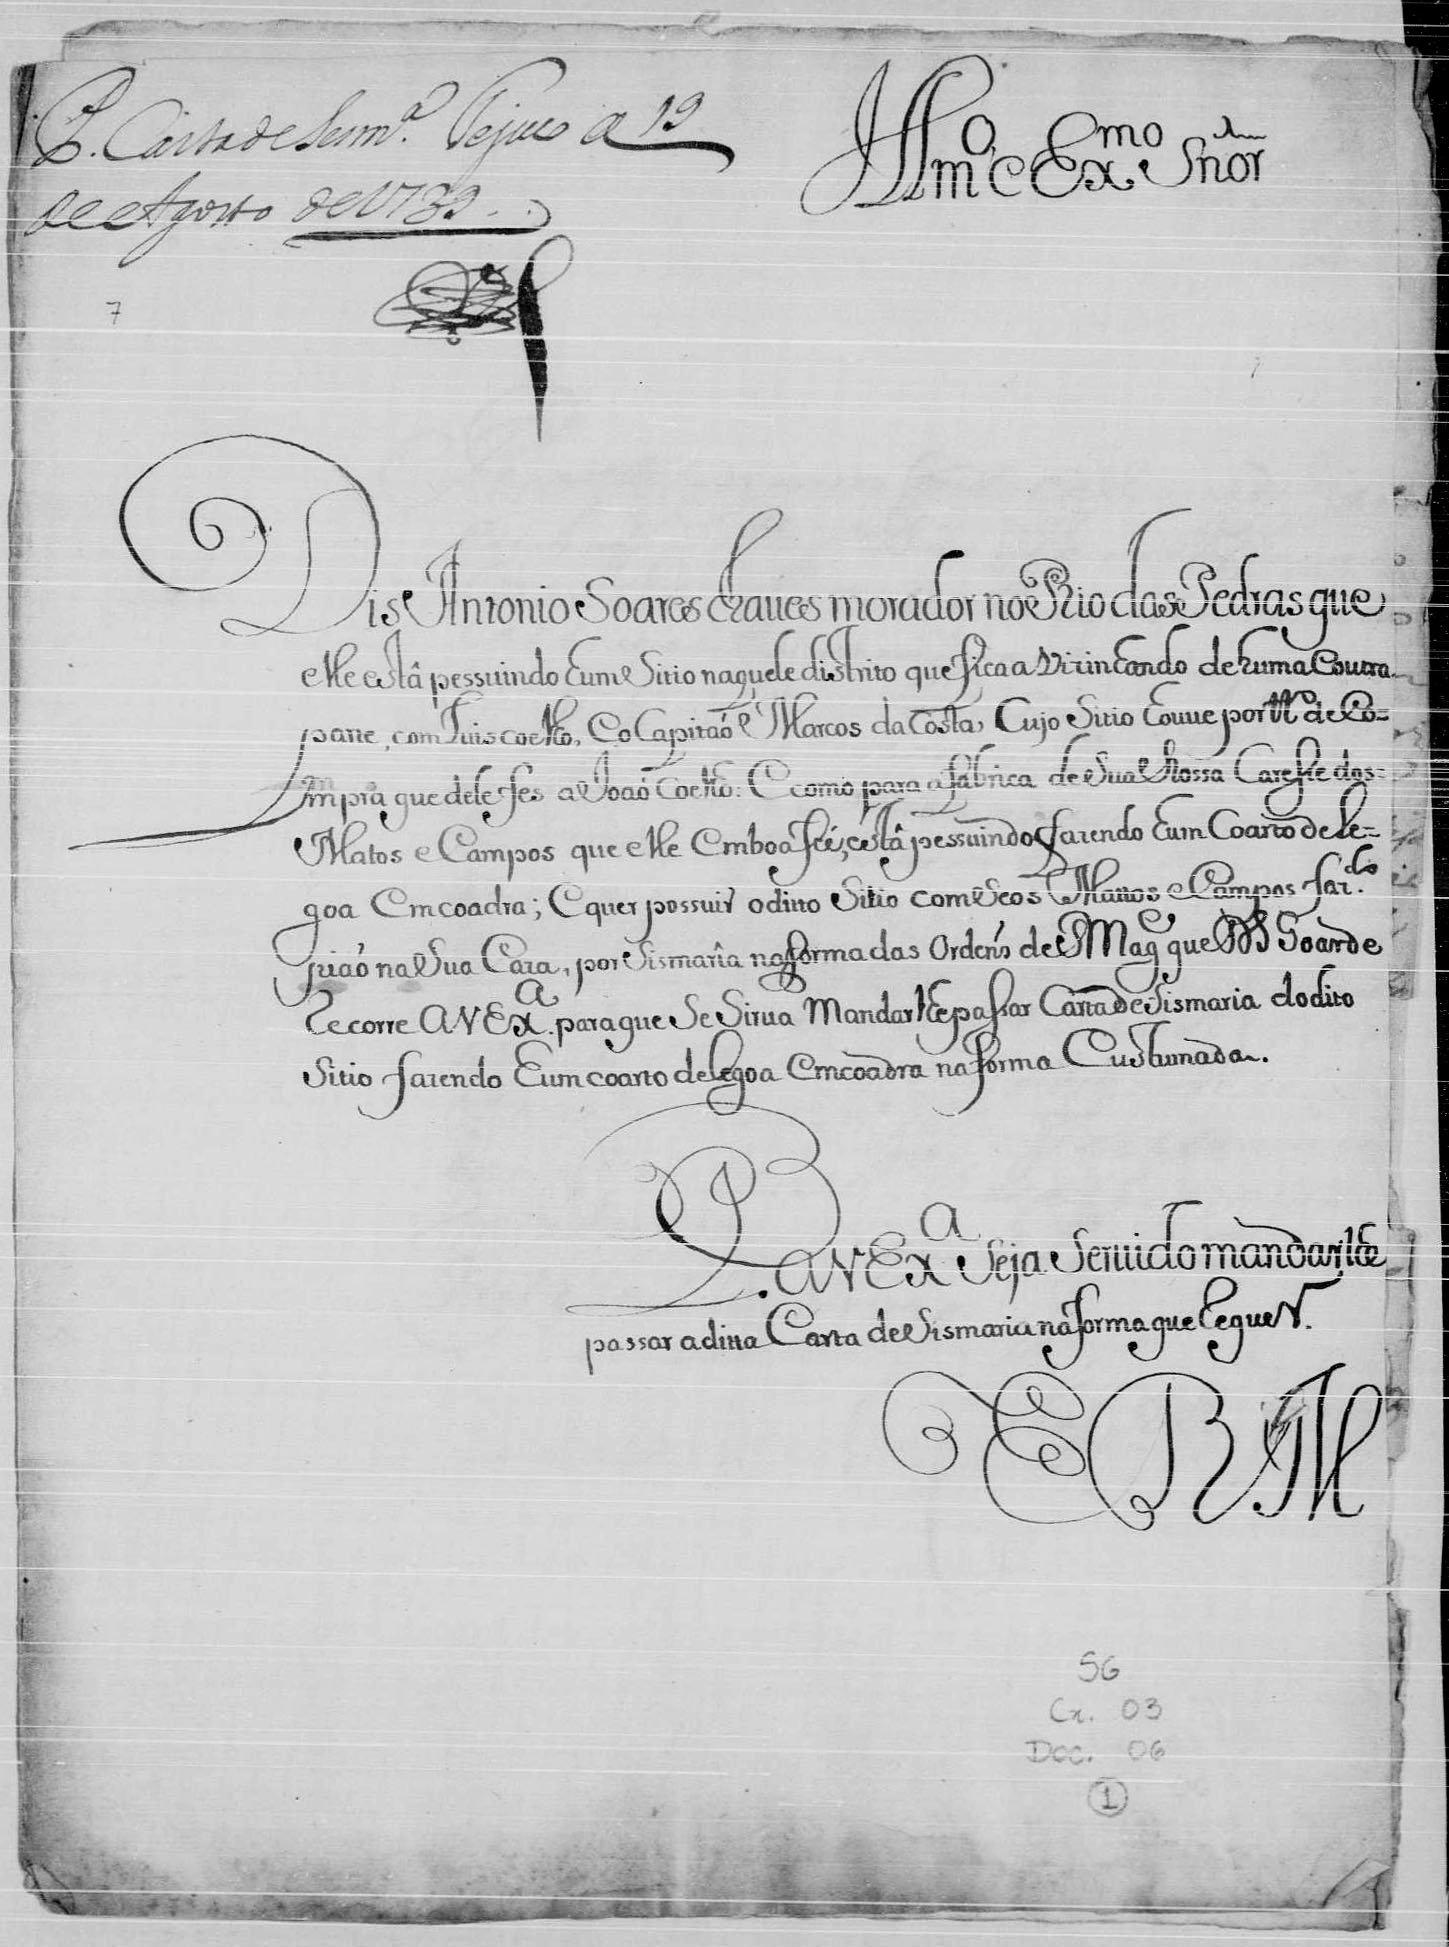 P. Carta de Sesm.ª Tejuco a 19
de Agosto de 1739.
Illmo e Exmo Snor
7
Dis Antonio Soares chaues morador no Rio das Pedras que
elle está pessuindo hum Sitio naquele distrito que fica a Vizinhando de huma e outra
parte, com Luis coelho, e o Capitaõ Marcos da Costa, Cujo Sitio houue por tt.º de Co=
mpra que dele fes a Joaõ Coelho: E como para a fabrica de Sua Rossa Carese dos=
Matos e Campos que elle em boa fé, está pessuindo fazendo hum Coarto de le=
goa em coadra; E quer possuir o ditto Sitio com Seos Mattos e Campos
na Sua Cara, por Sismaria na forma das Ordens de S Mag.e que D.s Goarde
Recorre a V Ex.a para que Se Sirua Mandar lhe passar Carta de Sismaria do dito
Sitio fazendo hum coarto de legoa em coadra na forma Custumada.
P. a V Ex.a Seja Seruido mandar lhe
passar a ditta Carta de Sismaria na forma que Requer.
E R M
SG
Cx. 03
Doc. 06
1